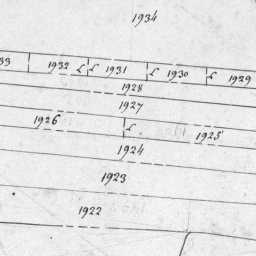 1934
33 1932 1931 1930 1929
1928
1927
1926 1925
1924
1923
1922